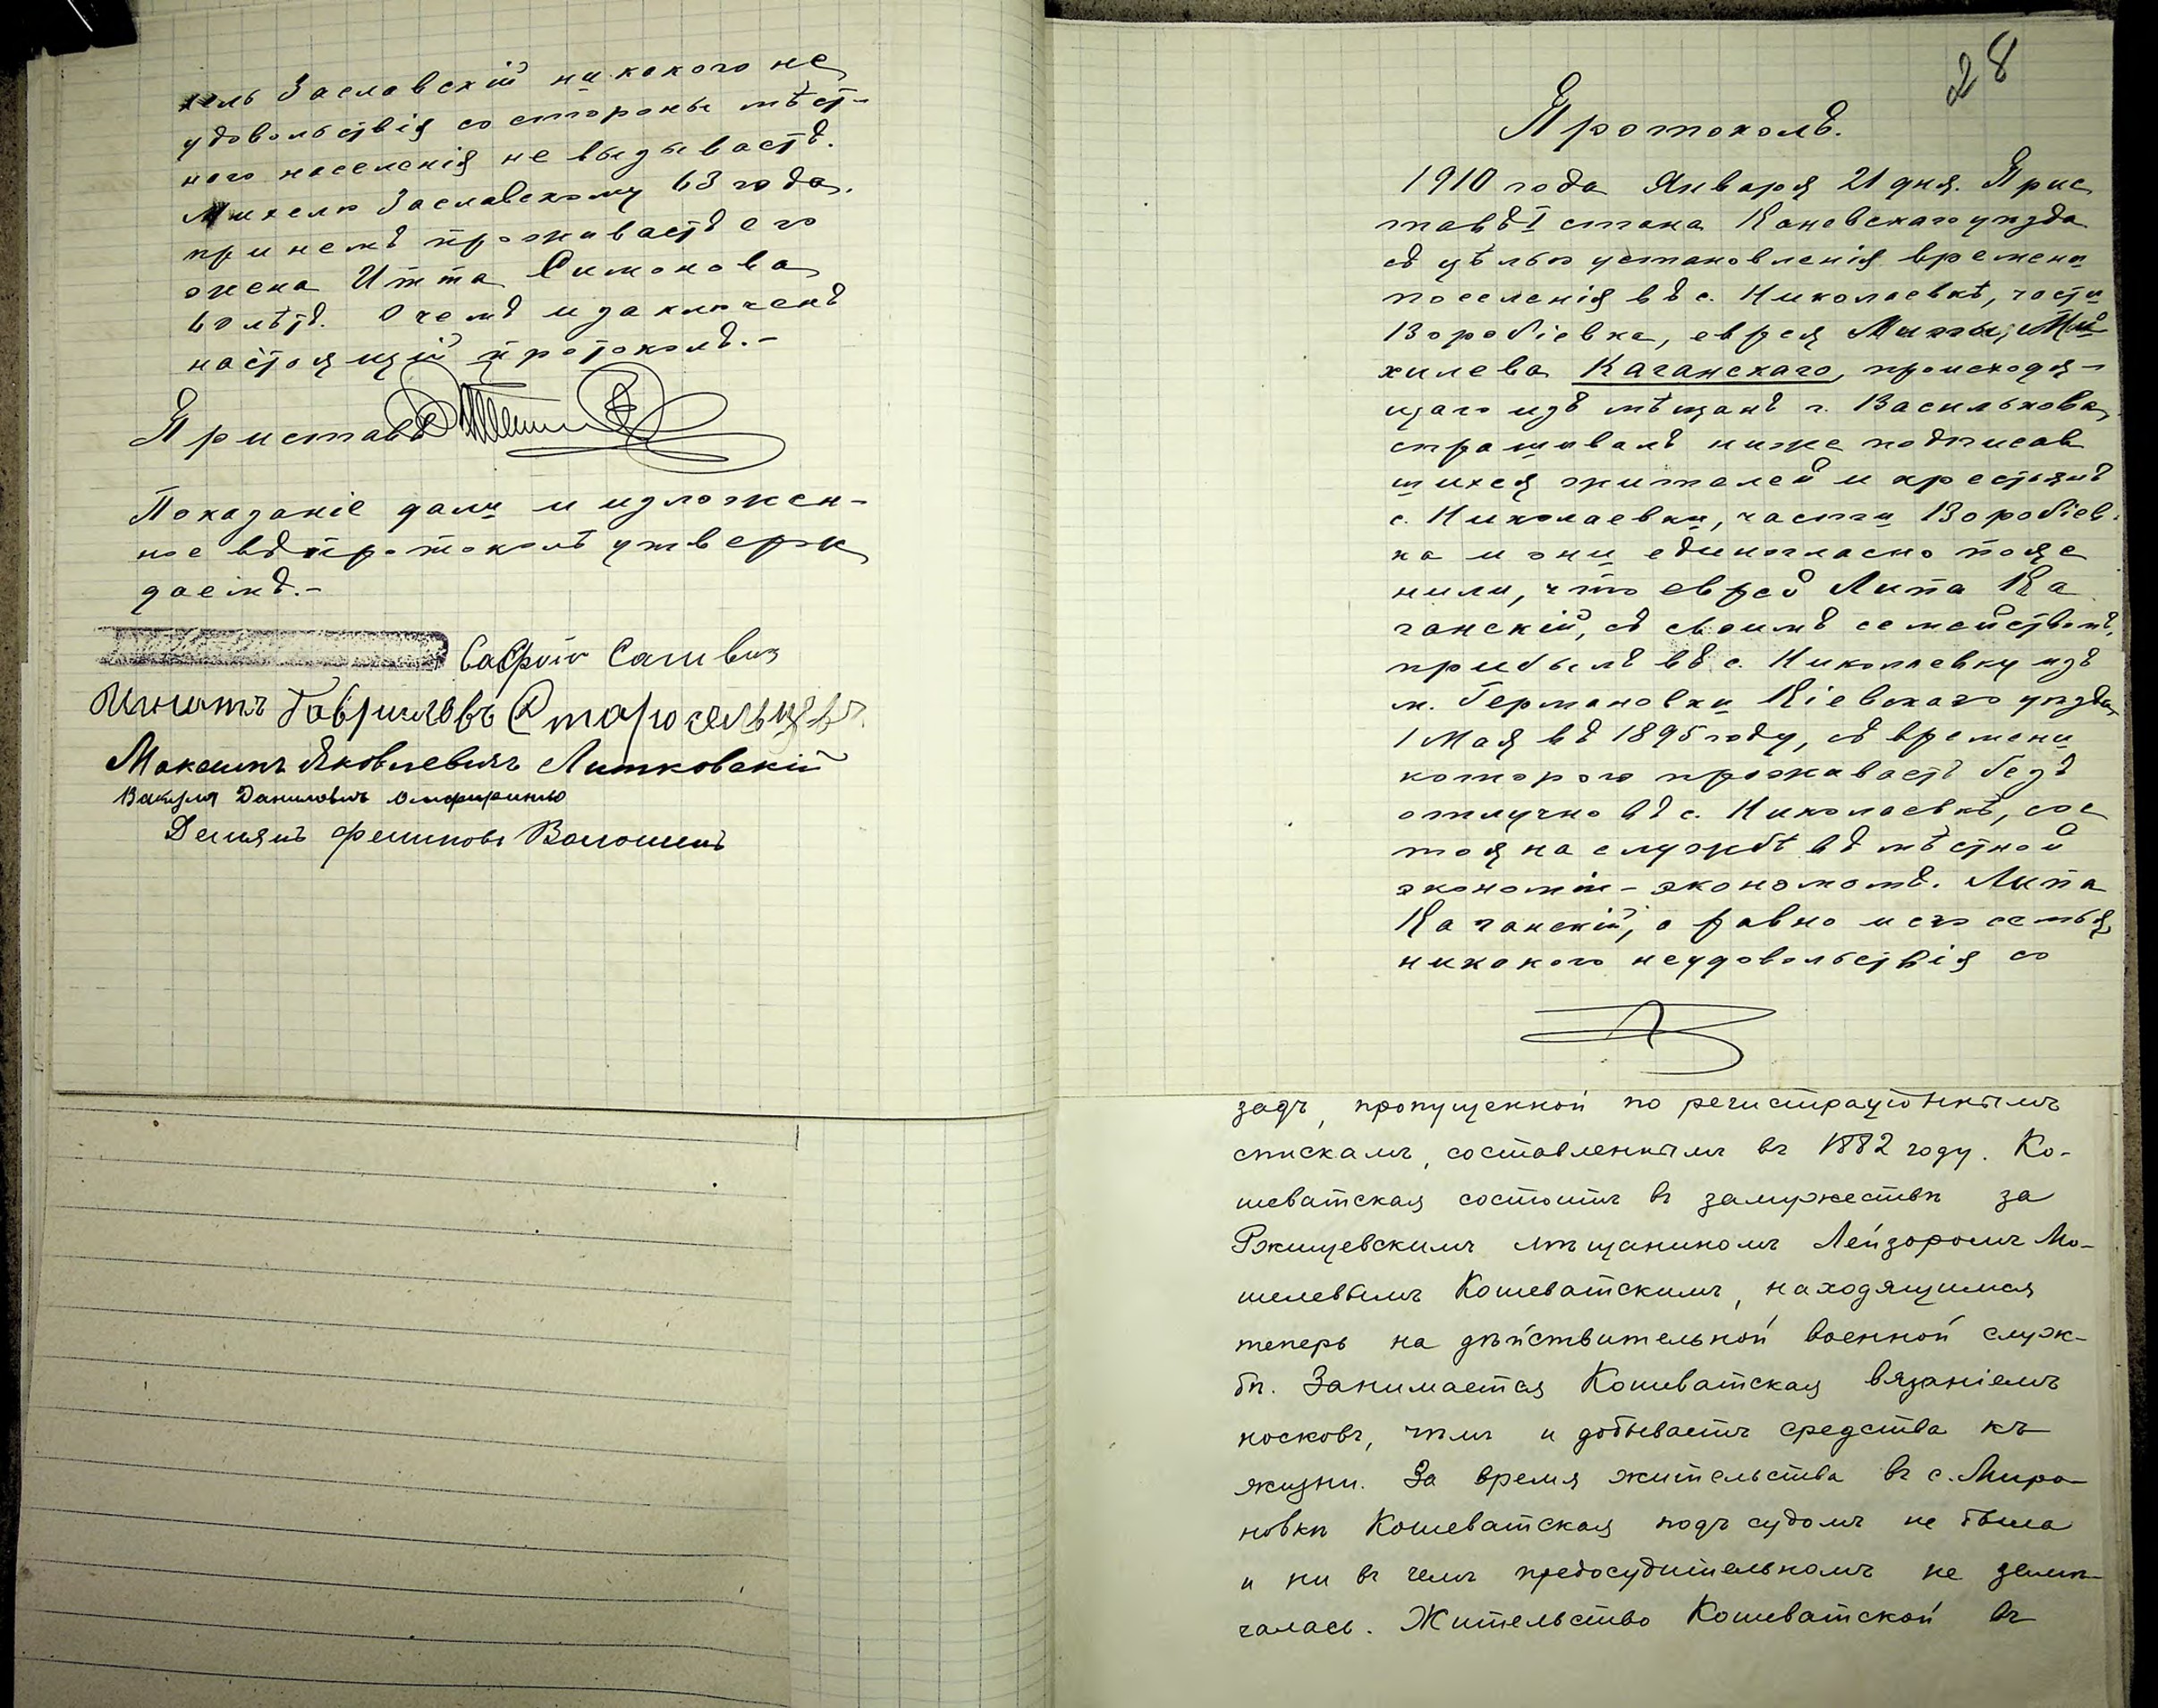 хель Заславскій никакого не
удовольствія со стороны мѣст-
ного населенія не вызываетъ.
Михелю Заславскому 63 года.
при немъ проживаетъ его
жена Итта Симонова
60 лѣтъ. О чемъ и заключенъ
настоящій протоколъ.-
Приставъ
Показаніе дали и изложен-
ное въ протоколѣ утверж
даемъ.-
Игнатъ Гавриловъ Старосельцевъ
Максимъ Яковлевичъ Литковскій
Вакула Даниловичъ
Демянъ Волошенъ
28
Протоколъ.
1910 года Января 21 дня. Прис
тавъ I стана Каневскаго уѣзда
съ цѣлью установленія времени
поселенія въ с. Николаевкѣ, части
Воробіевка, еврея Липы Ми
хилева Каганскаго, происходя-
щаго изъ мѣщанъ г. Василькова,
спрашивалъ ниже подписав
шихся жителей и крестьянъ
с. Николаевки, части Воробіев
ка и они единогласно пояс
нили, что еврей Липа Ка
ганскій, съ своимъ семействомъ,
прибылъ въ с. Николаевку изъ
м. Германовки Кіевскаго уѣзда,
1 Мая въ 1895 году, съ времени
котораго проживаетъ безъ
отлучно въ с. Николаевкѣ, сос
тоя на службѣ въ мѣстной
экономіи - экономомъ. Липа
Каганскій, а равно и его семья,
никакого неудовольствія со
задъ, пропущенной по регистраціоннымъ
спискамъ, составленнымъ въ 1882 году. Ко-
шеватская состоитъ въ замужествѣ за
Ржищевскимъ мѣщаниномъ Лейзоромъ Мо-
шелевымъ Кошеватскимъ, находящимся
теперь на дѣйствительной военной служ-
бѣ. Занимается Кошеватская вязаніемъ
носковъ, чѣмъ и добываетъ средства къ
жизни. За время жительства въ с. Миро-
новкѣ Кошеватская подъ судомъ не была
и ни въ чемъ предосудительномъ не замѣ-
чалась. Жительство Кошеватской въ